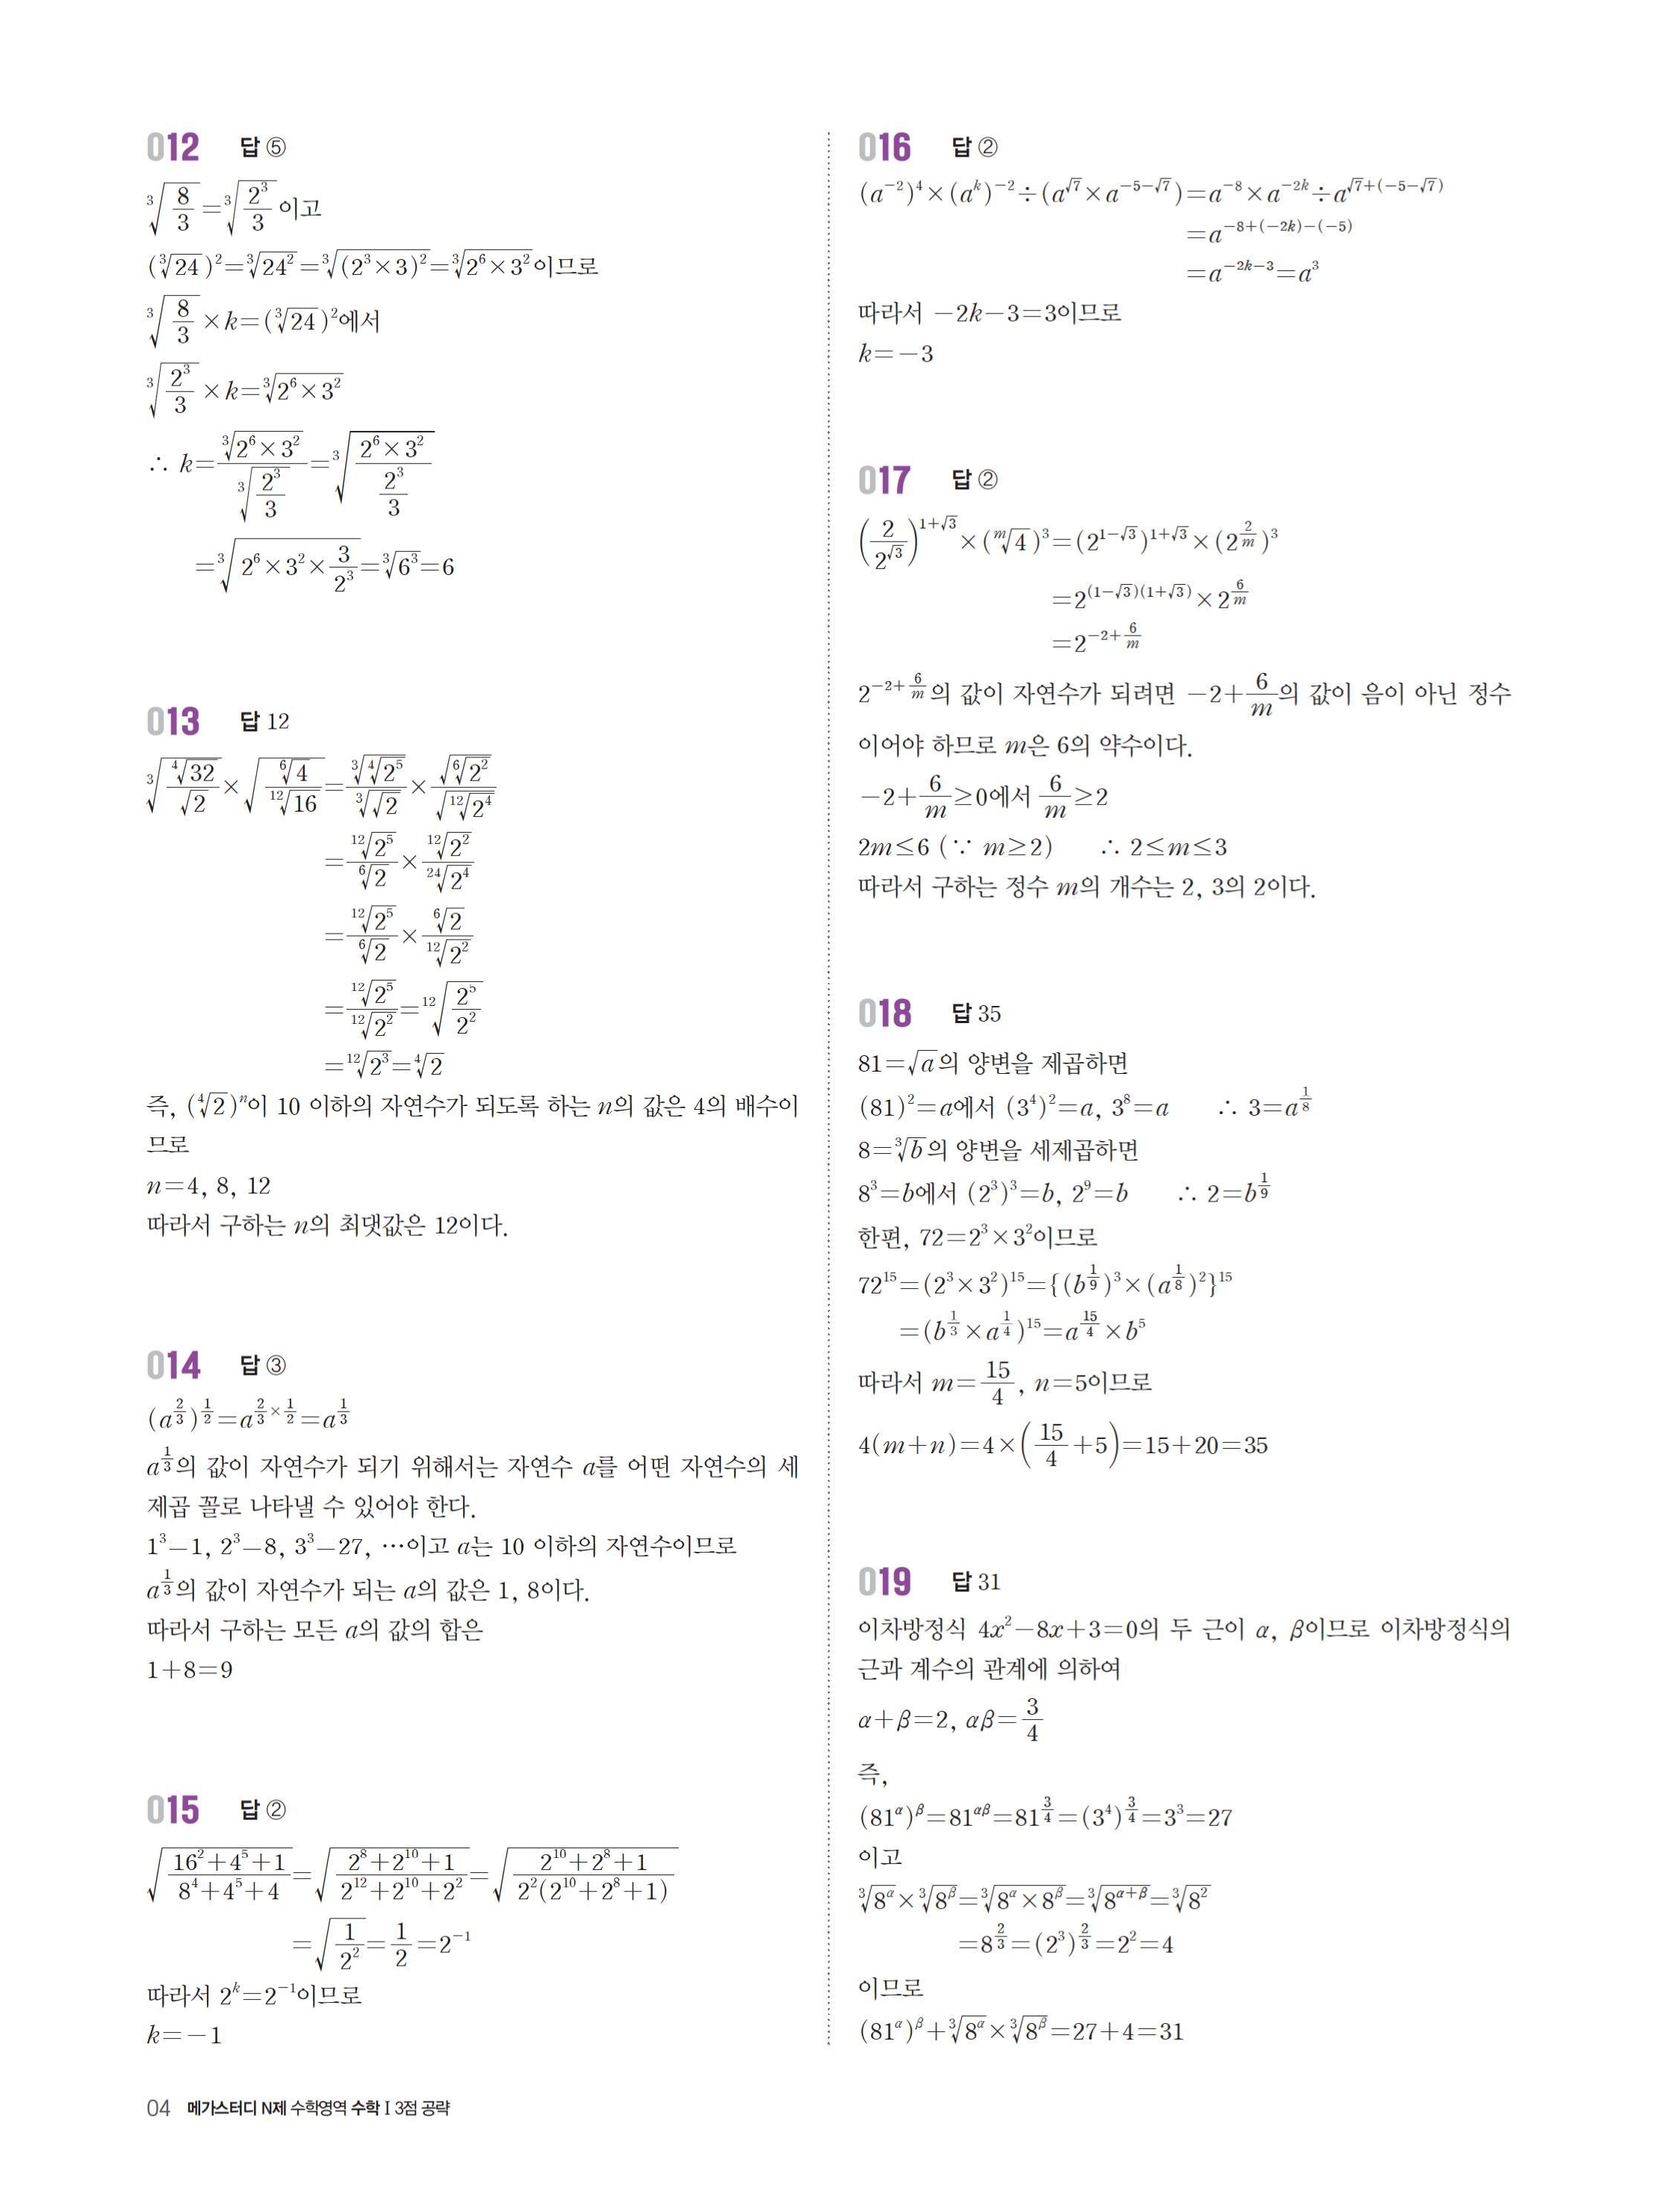 012 답 ⑤
∛(8/3)=∛(2³/3)이고
(∛24)²=∛24²=∛(2³×3)²=∛(2⁶×3²)이므로
∛(8/3)×k=(∛24)²에서
∛(2³/3)×k=∛(2⁶×3²)
∴ k=∛(2⁶×3²)/∛(2³/3)=∛((2⁶×3²)/(2³/3))
=∛(2⁶×3²×3/2³)=∛6³=6
013 답 12
∛(⁴√32/√2)×√(⁶√4/¹²√16)=∛(⁴√2⁵)/∛(√2)×√(⁶√2²)/√(¹²√2⁴)
=¹²√2⁵/⁶√2×¹²√2²/²⁴√2⁴
=¹²√2⁵/⁶√2×⁶√2/¹²√2²
=¹²√2⁵/¹²√2²=¹²√(2⁵/2²)
=¹²√2³=⁴√2
즉, (⁴√2)ⁿ이 10 이하의 자연수가 되도록 하는 n의 값은 4의 배수이
므로
n=4, 8, 12
따라서 구하는 n의 최댓값은 12이다.
014 답 ③
(a^(2/3))^(1/2)=a^(2/3×1/2)=a^(1/3)
a^(1/3)의 값이 자연수가 되기 위해서는 자연수 a를 어떤 자연수의 세
제곱 꼴로 나타낼 수 있어야 한다.
1³=1, 2³=8, 3³=27, …이고 a는 10 이하의 자연수이므로
a^(1/3)의 값이 자연수가 되는 a의 값은 1, 8이다.
따라서 구하는 모든 a의 값의 합은
1+8=9
015 답 ②
√((16²+4⁵+1)/(8⁴+4⁵+4))=√((2⁸+2¹⁰+1)/(2¹²+2¹⁰+2²))=√((2¹⁰+2⁸+1)/(2²(2¹⁰+2⁸+1)))
=√(1/2²)=1/2=2⁻¹
따라서 2ᵏ=2⁻¹이므로
k=-1
016 답 ②
(a⁻²)⁴×(aᵏ)⁻²÷(a^(√7)×a^(-5-√7))=a⁻⁸×a^(-2k)÷a^(√7+(-5-√7))
=a^(-8+(-2k)-(-5))
=a^(-2k-3)=a³
따라서 -2k-3=3이므로
k=-3
017 답 ②
(2/2^(√3))^(1+√3)×(ᵐ√4)³=(2^(1-√3))^(1+√3)×(2^(2/m))³
=2^((1-√3)(1+√3))×2^(6/m)
=2^(-2+6/m)
2^(-2+6/m)의 값이 자연수가 되려면 -2+6/m의 값이 음이 아닌 정수
이어야 하므로 m은 6의 약수이다.
-2+6/m≥0에서 6/m≥2
2m≤6 (∵ m≥2) ∴ 2≤m≤3
따라서 구하는 정수 m의 개수는 2, 3의 2이다.
018 답 35
81=√a의 양변을 제곱하면
(81)²=a에서 (3⁴)²=a, 3⁸=a ∴ 3=a^(1/8)
8=∛b의 양변을 세제곱하면
8³=b에서 (2³)³=b, 2⁹=b ∴ 2=b^(1/9)
한편, 72=2³×3²이므로
72¹⁵=(2³×3²)¹⁵={(b^(1/9))³×(a^(1/8))²}¹⁵
=(b^(1/3)×a^(1/4))¹⁵=a^(15/4)×b⁵
따라서 m=15/4, n=5이므로
4(m+n)=4×(15/4+5)=15+20=35
019 답 31
이차방정식 4x²-8x+3=0의 두 근이 α, β이므로 이차방정식의
근과 계수의 관계에 의하여
α+β=2, αβ=3/4
즉,
(81^α)^β=81^(αβ)=81^(3/4)=(3⁴)^(3/4)=3³=27
이고
∛(8^α)×∛(8^β)=∛(8^α×8^β)=∛(8^(α+β))=∛8²
=8^(2/3)=(2³)^(2/3)=2²=4
이므로
(81^α)^β+∛(8^α)×∛(8^β)=27+4=31
04 메가스터디 N제 수학영역 수학 Ⅰ 3점 공략